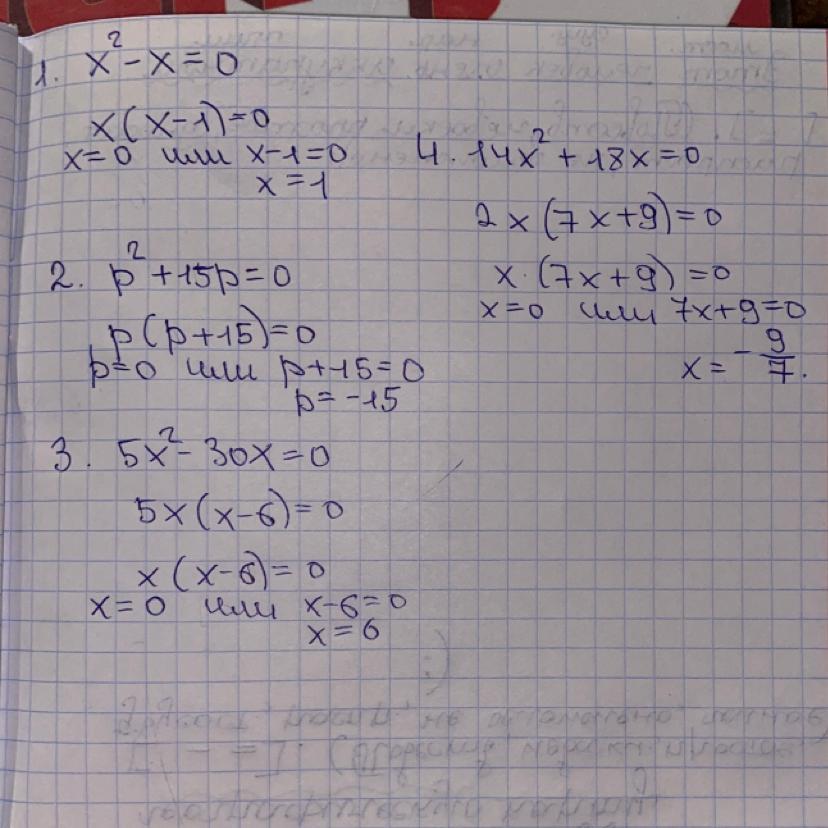 1. x² - x = 0
x(x-1)=0
x=0 или x-1=0
x=1
2. p² + 15p = 0
p(p+15)=0
p=0 или p+15=0
p= -15
3. 5x² - 30x = 0
5x(x-6)= 0
x(x-6)= 0
x=0 или x-6=0
x=6
4. 14x² + 18x = 0
2x(7x+9)=0
x·(7x+9)=0
x=0 или 7x+9=0
x= -9/7.